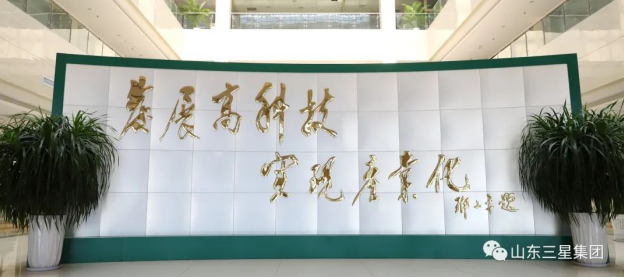 发展高科技
实现产业化
山东三星集团